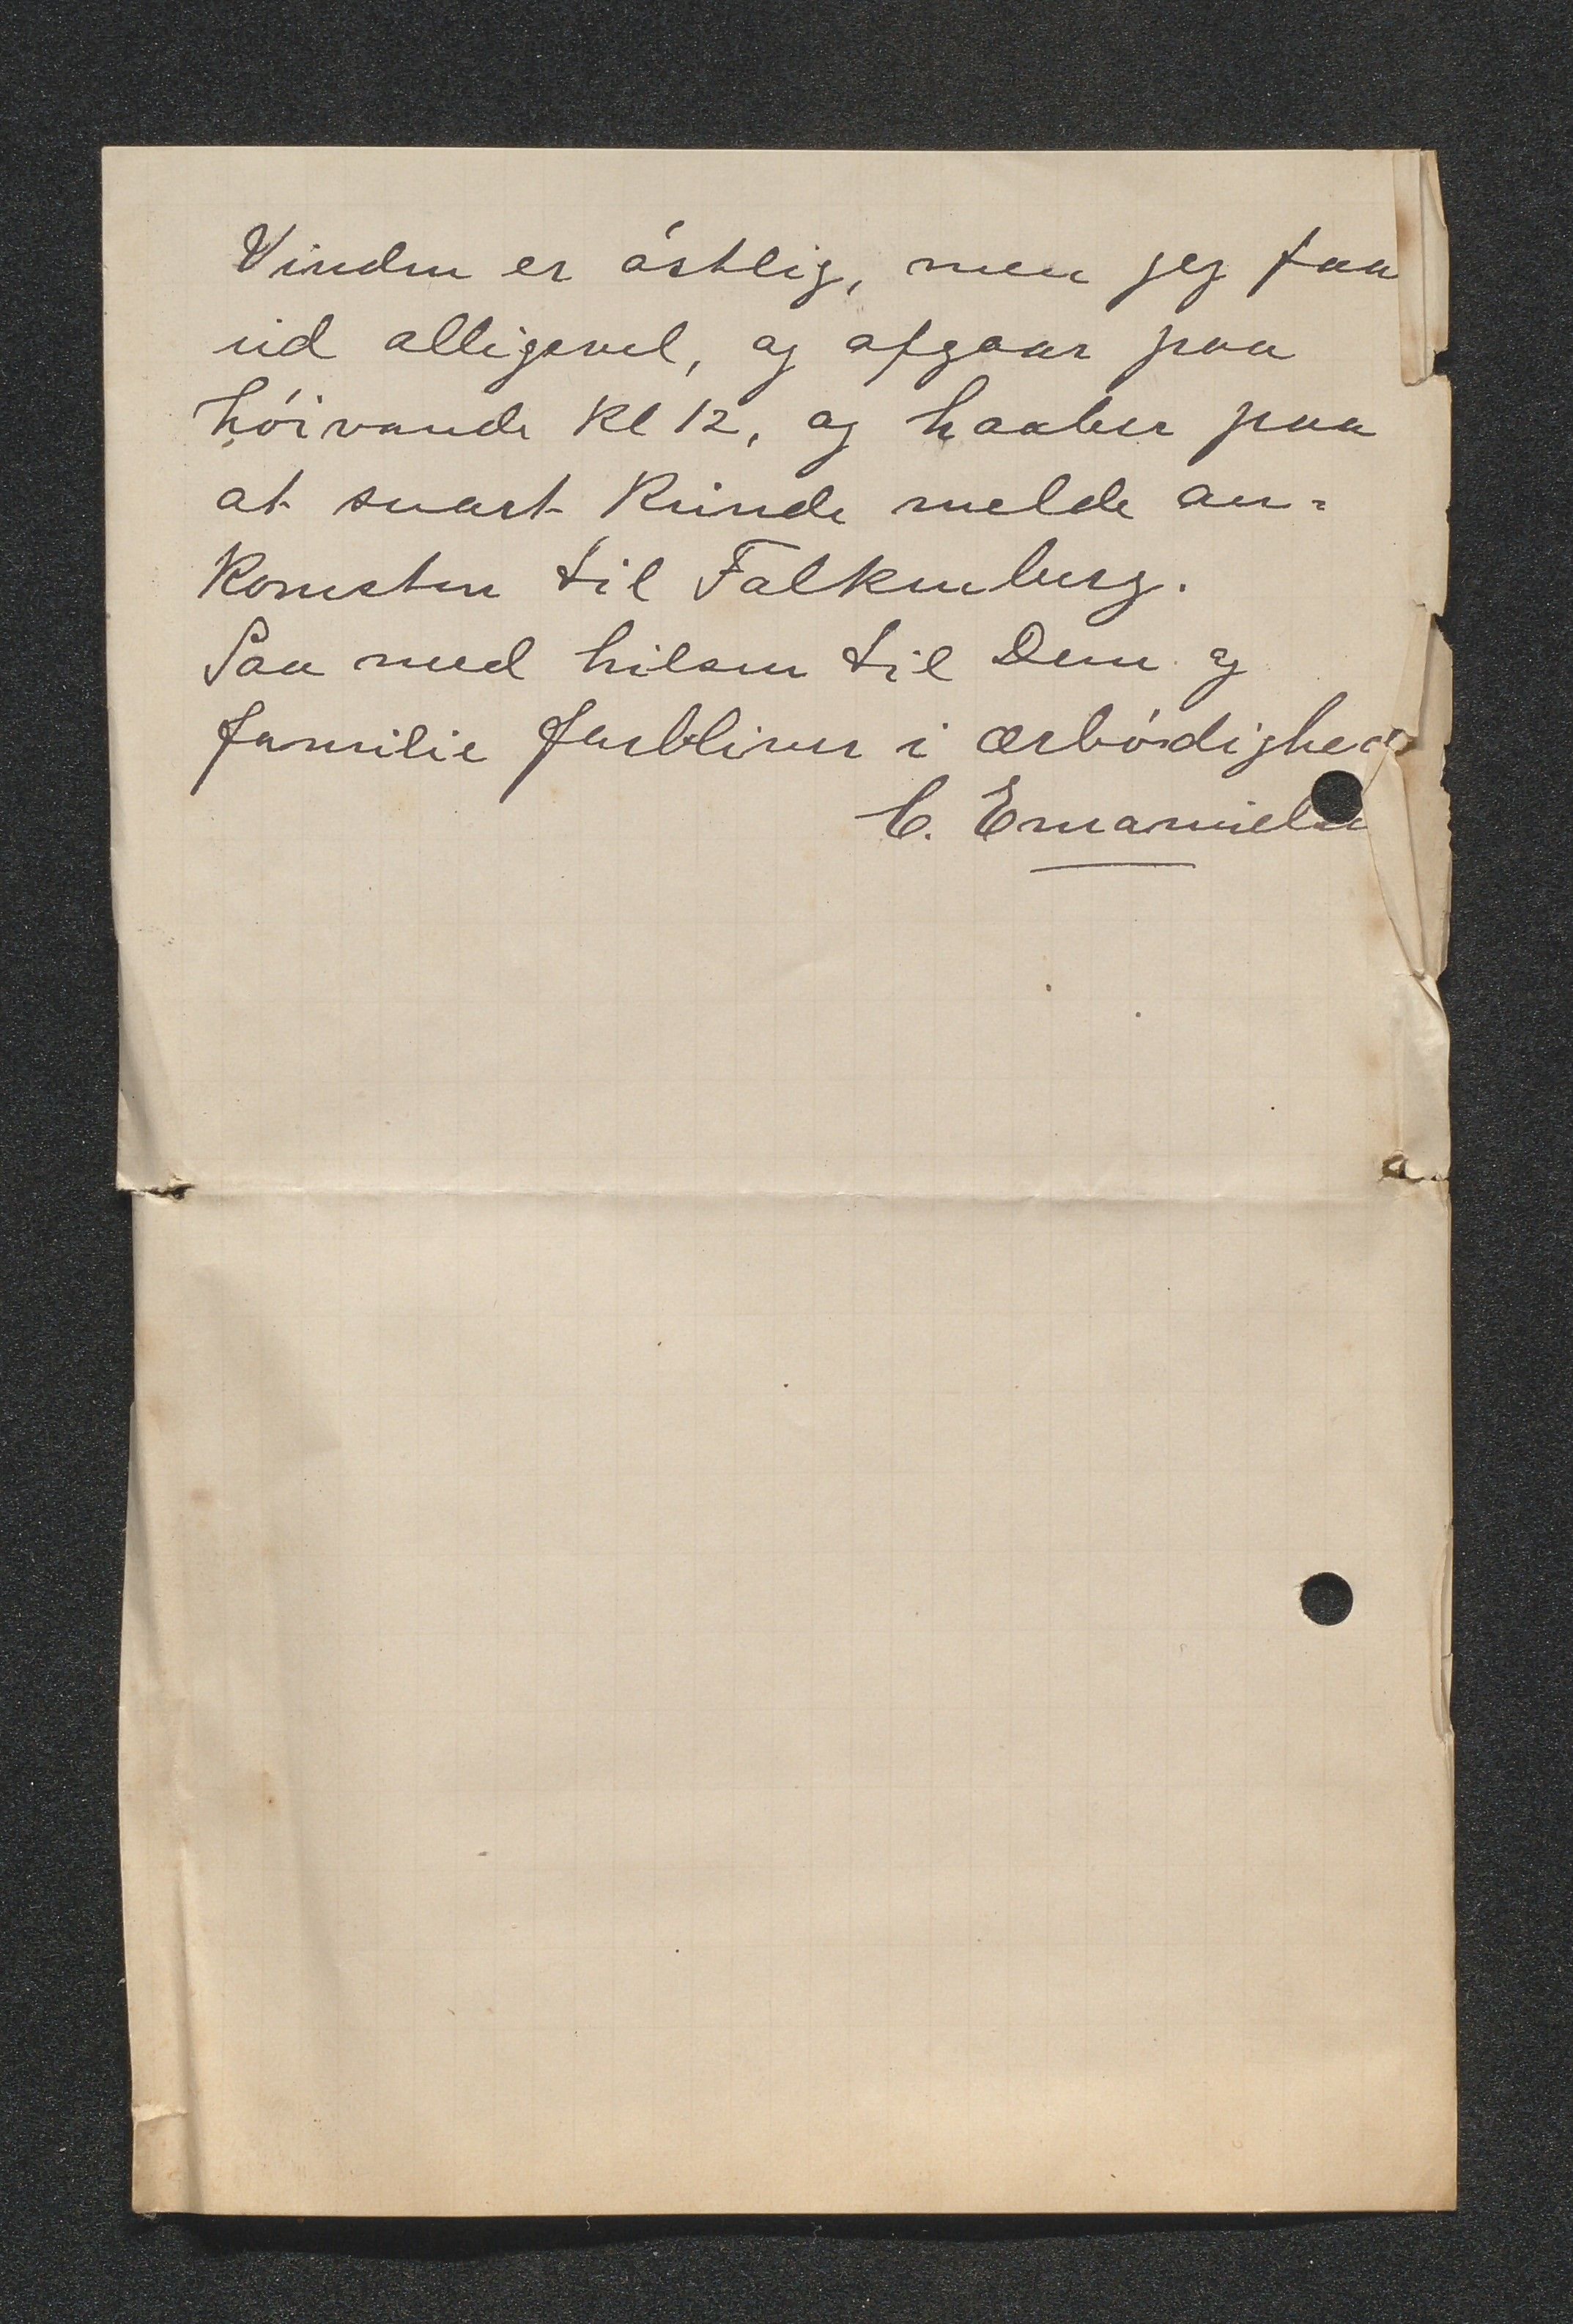 Vinden er östlig, men jeg faa
ud alligevel, og afgaar paa
höivande Kl 12, og haaber paa
at snart kunde melde an-
komsten til Falkenberg.
Saa med hilsen til Dem og
familie forbliver i ærbödighed
C. Emanuels